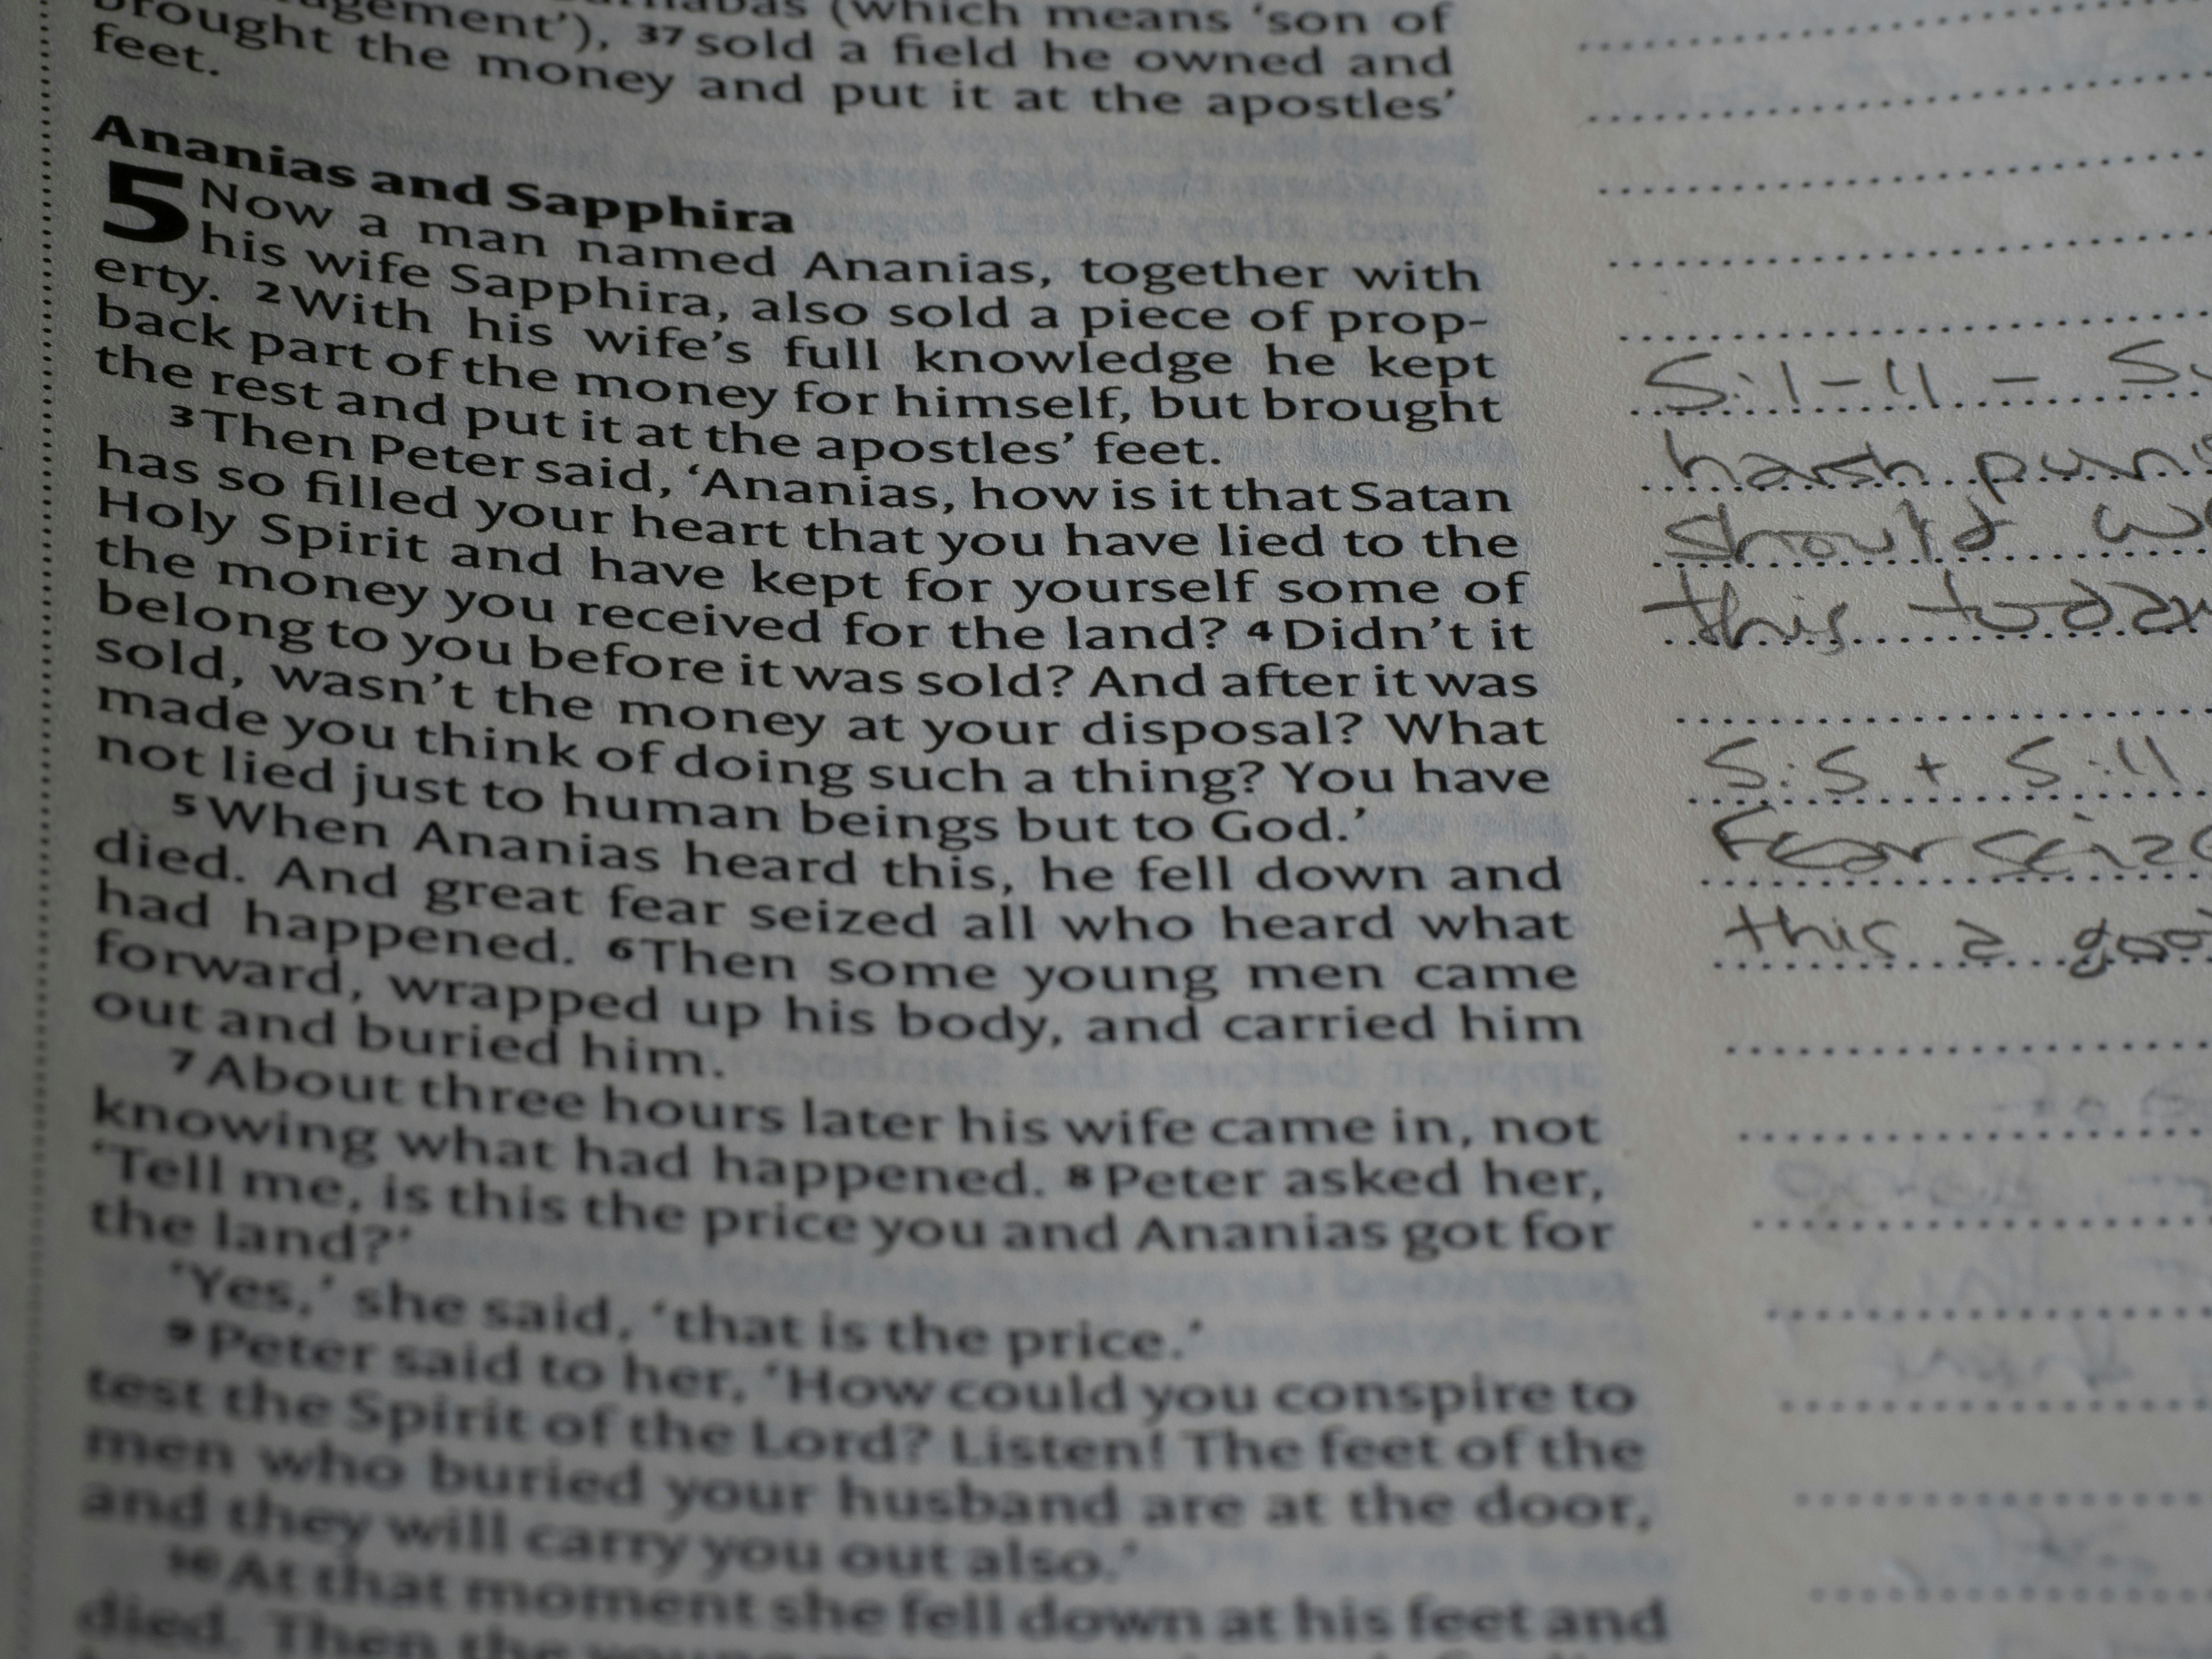 (which means ‘son of
37 sold a field he owned and
brought the money and put it at the apostles’
feet.
Ananias and Sapphira
5 Now a man named Ananias, together with
his wife Sapphira, also sold a piece of prop-
erty. 2 With his wife’s full knowledge he kept
back part of the money for himself, but brought
the rest and put it at the apostles’ feet.
3 Then Peter said, ‘Ananias, how is it that Satan
has so filled your heart that you have lied to the
Holy Spirit and have kept for yourself some of
the money you received for the land? 4 Didn’t it
belong to you before it was sold? And after it was
sold, wasn’t the money at your disposal? What
made you think of doing such a thing? You have
not lied just to human beings but to God.’
5 When Ananias heard this, he fell down and
died. And great fear seized all who heard what
had happened. 6 Then some young men came
forward, wrapped up his body, and carried him
out and buried him.
7 About three hours later his wife came in, not
knowing what had happened. 8 Peter asked her,
‘Tell me, is this the price you and Ananias got for
the land?’
‘Yes,’ she said, ‘that is the price.’
9 Peter said to her, ‘How could you conspire to
test the Spirit of the Lord? Listen! The feet of the
men who buried your husband are at the door,
and they will carry you out also.’
10 At that moment she fell down at his feet and
died. Then the young
5:1-11 -
harsh
should
this today
5:5 + 5:11
Fear
this a